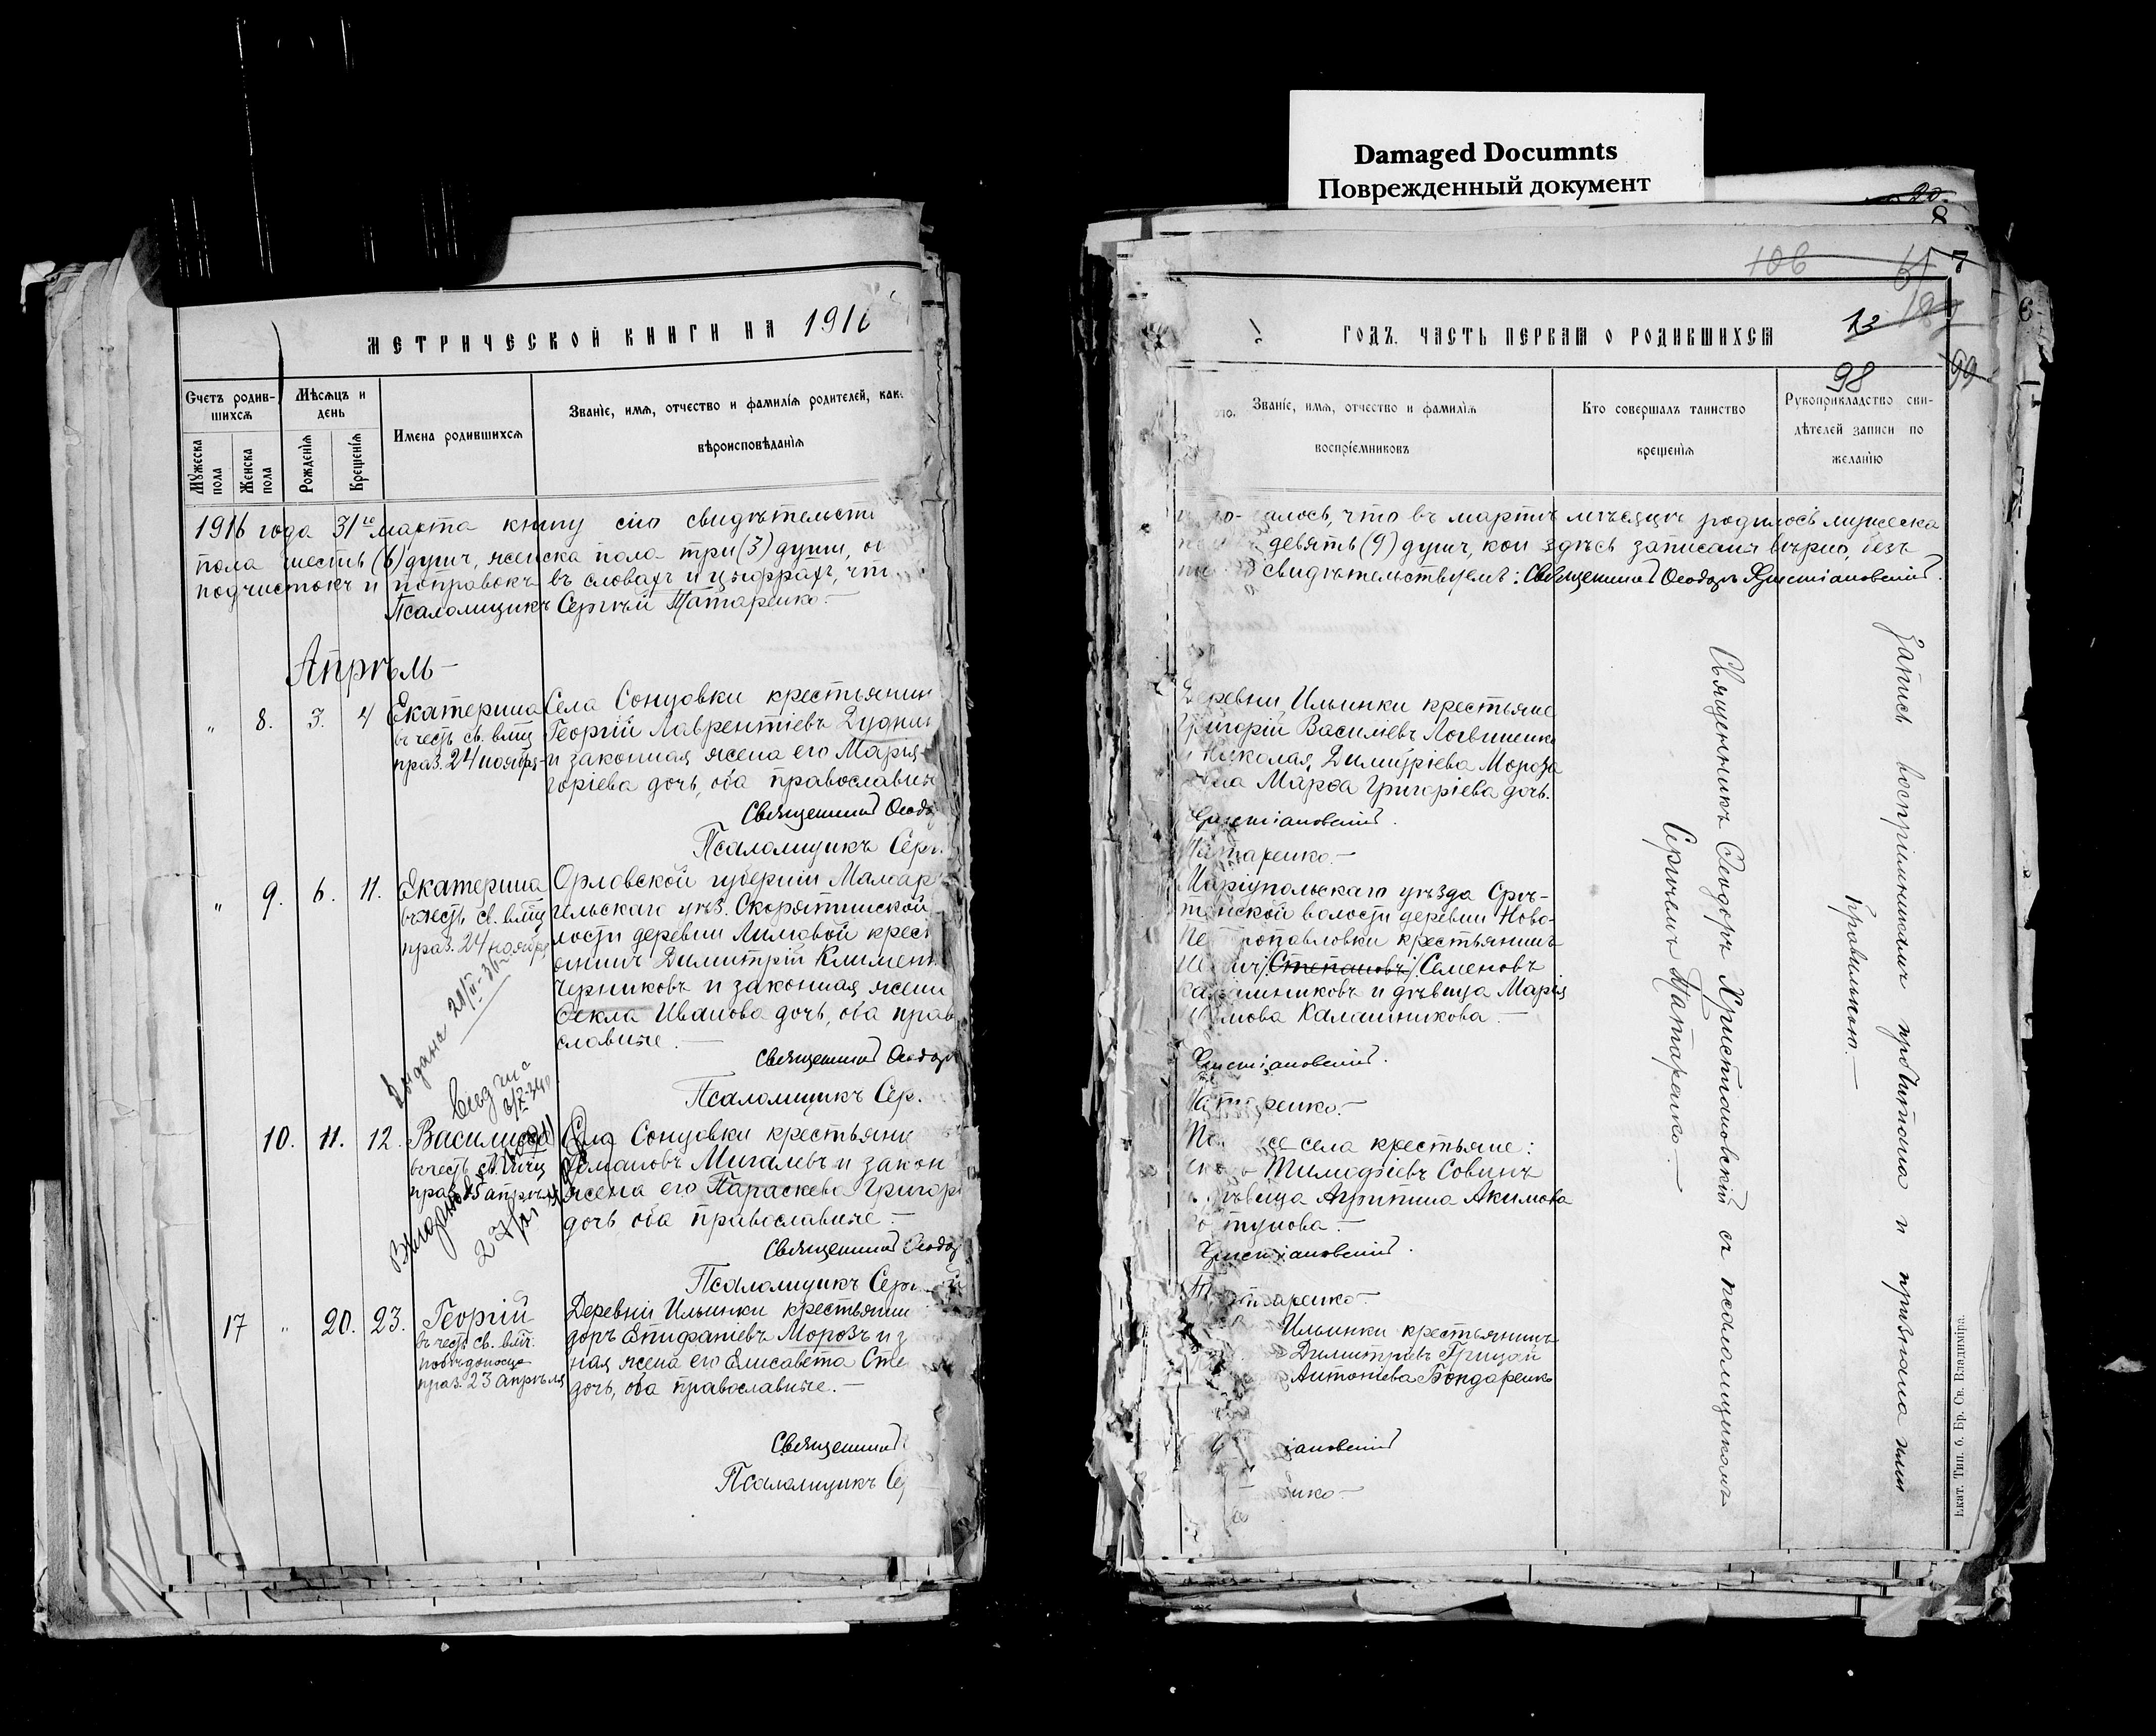 Damaged Documnts
Поврежденный документ
МЕТРИЧЕСКОЙ КНИГИ НА 1916
Счетъ родив-
шихся
Мѣсяцъ и
день
Имена родившихся
Званіе, имя, отчество и фамилія родителей, как
вѣроисповѣданія
Мужеска
пола
Женска
пола
Рожденія
Крещенія
1916 года 31го марта книгу сію свидѣтельст
пола шесть (6) душъ, женска пола три (3) души,
подчистокъ и поправокъ въ словахъ и цыфрахъ, чт
Псаломщикъ Сергѣй Татаренко.—
Апрѣль—
„ 8. 3. 4
Екатерина
въ честь св. влмц
праз. 24 ноября
Села Сонцовки крестьянин
Георгій Лаврентіевъ Дудник
и законная жена его Марія
горіева дочь, оба православные
Священникъ Ѳеодо
Псаломщикъ Серг
„ 9. 6. 11.
Екатерина
въ честь св. влмц
праз. 24 ноября
Орловской губерніи Малоар
гельскаго уѣз. Скорятинской
лости деревни Лимовой крест
янинъ Димитрій Климент
Черниковъ и законная жена
Ѳекла Иванова дочь, оба прав
славные.—
Священникъ Ѳеодоръ
Псаломщикъ Сер
Выдана
10. 11. 12.
Василисса
въ честь св. мчц
праз. 15 апрѣля
Села Сонцовки крестьянин
Романовъ Мигалевъ и закон
жена его Параскева Григор
дочь, оба православные.—
Священникъ Ѳеодо
Псаломщикъ Серг
17 „ 20. 23.
Георгій
въ честь св. влмч.
побѣдоносца
праз. 23 апрѣля
Деревни Ильинки крестьянин
доръ Епифаніевъ Морозъ и з
ная жена его Елисавета Сте
дочь, оба православные.—
Священникъ
Псаломщикъ Се
20.
8
106
7
13
98
99
ГОДЪ. ЧАСТЬ ПЕРВАЯ О РОДИВШИХСЯ
Званіе, имя, отчество и фамилія
воспріемниковъ
Кто совершалъ таинство
крещенія
Рукоприкладство сви-
дѣтелей записи по
желанію
алось, что въ мартѣ мѣсяцѣ родилось мужеска
девять (9) душъ, кои здѣсь записаны вѣрно, безъ
свидѣтельствуемъ: Священникъ Ѳеодоръ Христіановскій.
Деревни Ильинки крестьяне
Григорій Василіевъ Логвиненко
и Николая Димитріева Мороза
жена Марѳа Григоріева дочь.
Христіановскій.
Татаренко.—
Маріупольскаго уѣзда Срѣ-
тенской волости деревни Ново-
Петропавловки крестьянинъ
Степановъ Семеновъ
Калашниковъ и дѣвица Марія
Калашникова.—
Христіановскій.
Татаренко.—
села крестьяне:
Тимоѳіевъ Совинъ
дѣвица Агрипина Акимова
Христіановскій.
Татаренко.—
Ильинки крестьянинъ
Димитріевъ Грицай
Антоніева Бондаренко
іановскій
нко.—
Священникъ Ѳеодоръ Христіановскій съ псаломщикомъ
Сергѣемъ Татаренко.—
Запись воспріемникамъ прочитана и признана ими
правильною.—
Екат. Тип. б. Бр. Св. Владиміра.